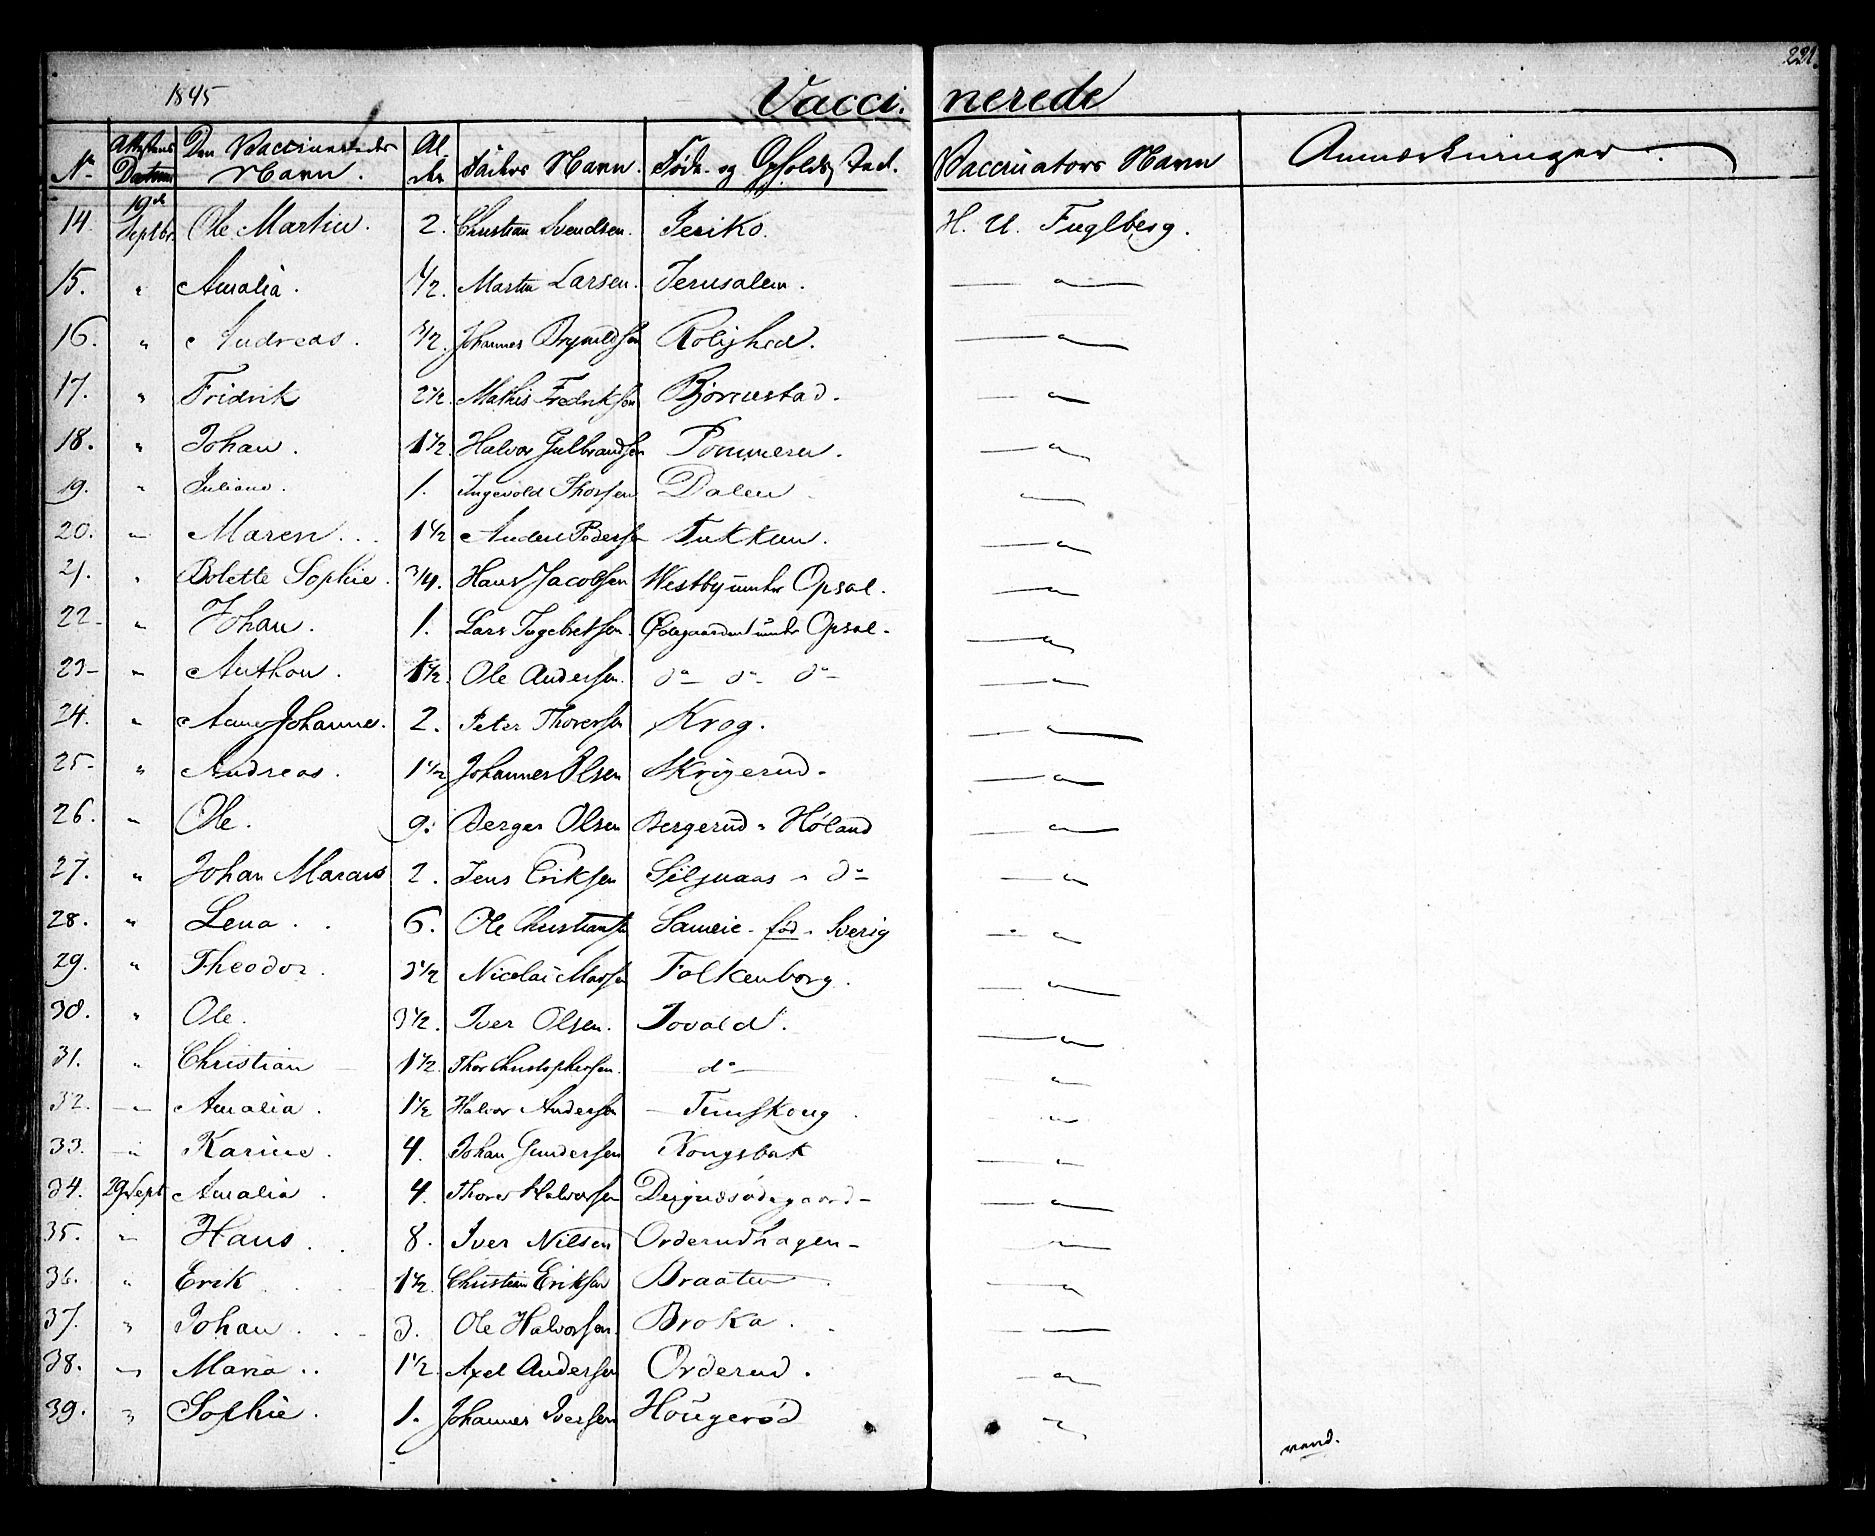 221.
1845 Vaccinerede
No Attestens Datum Den Vaccineredes Navn. Alder Faders Navn. Føde- og Opholds Sted. Vaccinators Navn Anmærkninger.
14. 19de Septbr. Ole Martin. 2. Christian Svendsen. Jeriko. H. U. Fuglberg.
15. " Amalia. 1/2. Martin Larsen. Jerusalem. — " —
16. " Andreas. 3/2. Johannes Brynildsen Rolighed. — " —
17. " Fridrik 2 1/2. Mathis Fredriksen Bjørnestad. — " —
18. " Johan. 1 1/2. Halvor Gulbrandsen Pommern. — " —
19. " Juliane. 1. Ingevold Thorsen Dalen — " —
20. " Maren. 1 1/2 Anders Pedersen Tukkun. — " —
21. " Bolette Sophie. 3/4. Hans Jacobsen Westby under Opsal. — " —
22- " Johan. 1. Lars Ingebretsen. Ødegaarden under Opsal- — " —
23- " Anthon. 1 1/2. Ole Andersen. do do do — " —
24. " Anne Johanne. 2. Peter Thorersen Krog. — " —
25- " Andreas. 1 1/2 Johannes Olsen Skrigerud- — " —
26. " Ole. 9. Berger Olsen Bergerud " Høland — " —
27. " Johan Marcus 2. Jens Eriksen Siljuaas " do — " —
28. " Lena. 6. Ole Christiansen Sameie - fød " Sverig — " —
29. " Theodor. 3 1/2 Nicolai Massen Falkenborg. — " —
30. " Ole. 3 1/2. Iver Olsen. Tovald. — " —
31. " Christian 1 1/2 Thor Christophersen. do — " —
32. " Amalia. 1 1/2 Halvor Andersen — " —
33. " Karine. 4. Johan Gundersen Kongsbak — " —
34. 29 Sept Amalia. 4. Thorer Halvorsen — " —
35. " Hans. 8. Iver Nilsen Orderudhagen- — " —
36. " Erik 1 1/2. Christian Eriksen Braaten — " —
37. " Johan. 3. Ole Halvorsen. Broka. — " —
38. " Maria.. 1 1/2. Axel Andersen Orderud. — " —
39. " Sophie. 1. Johannes Iversen Hougerød — " —
vend.